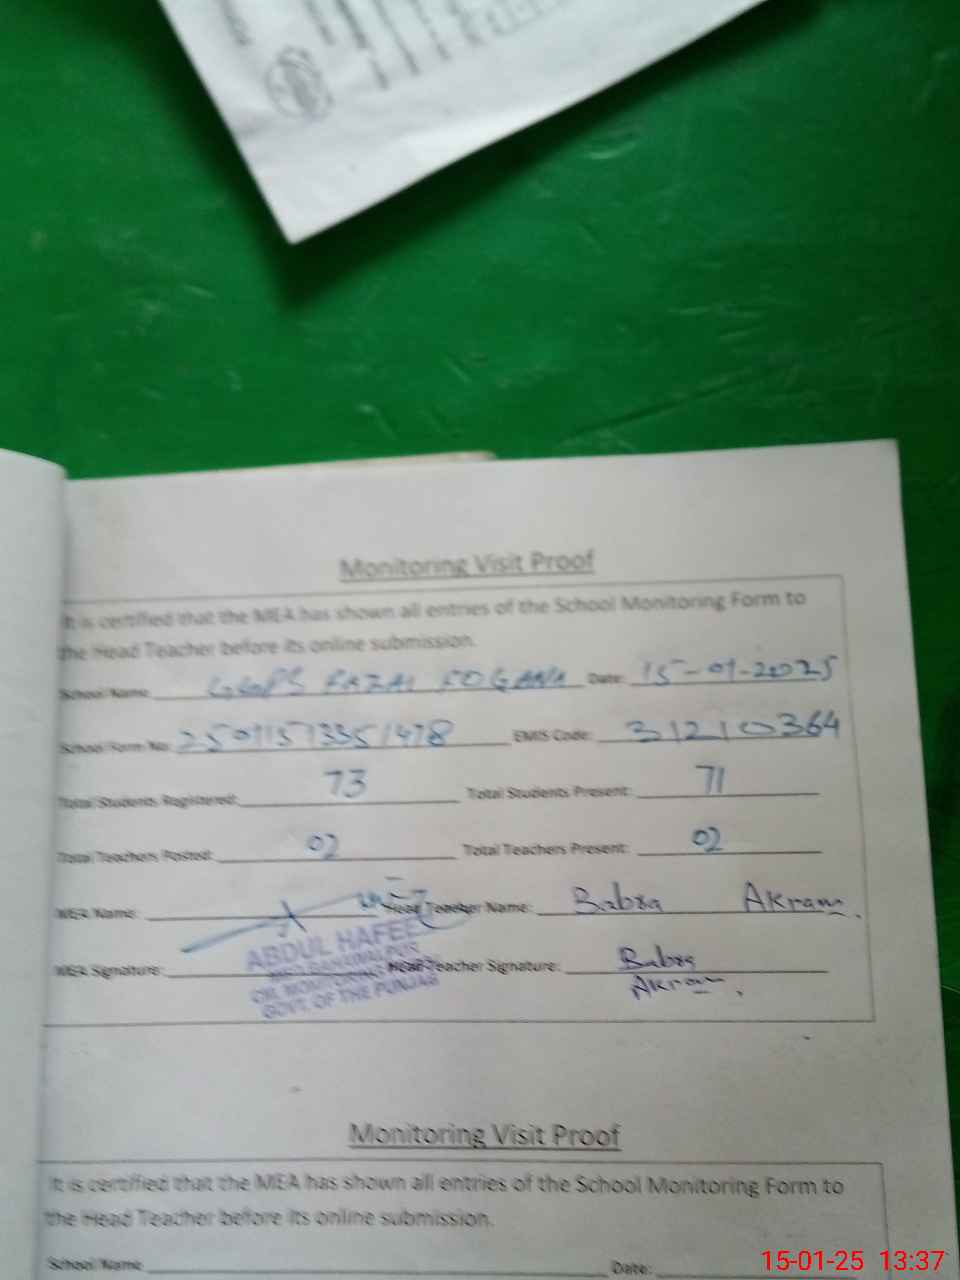 Monitoring Visit Proof
It is certified that the MEA has shown all entries of the School Monitoring Form to
the Head Teacher before its online submission.
School Name: GGPS FAZAL Date: 15-01-2025
School Form No: EMIS Code: 31210364
Total Students Registered: 73 Total Students Present: 71
Total Teachers Posted: 02 Total Teachers Present: 02
MEA Name: Head Teacher Name: Babra Akram.
MEA Signature: Head Teacher Signature: Babra
Akram.
ABDUL HAFEE
GOVT. OF THE PUNJAB
Monitoring Visit Proof
It is certified that the MEA has shown all entries of the School Monitoring Form to
the Head Teacher before its online submission.
School Name Date:
15-01-25 13:37